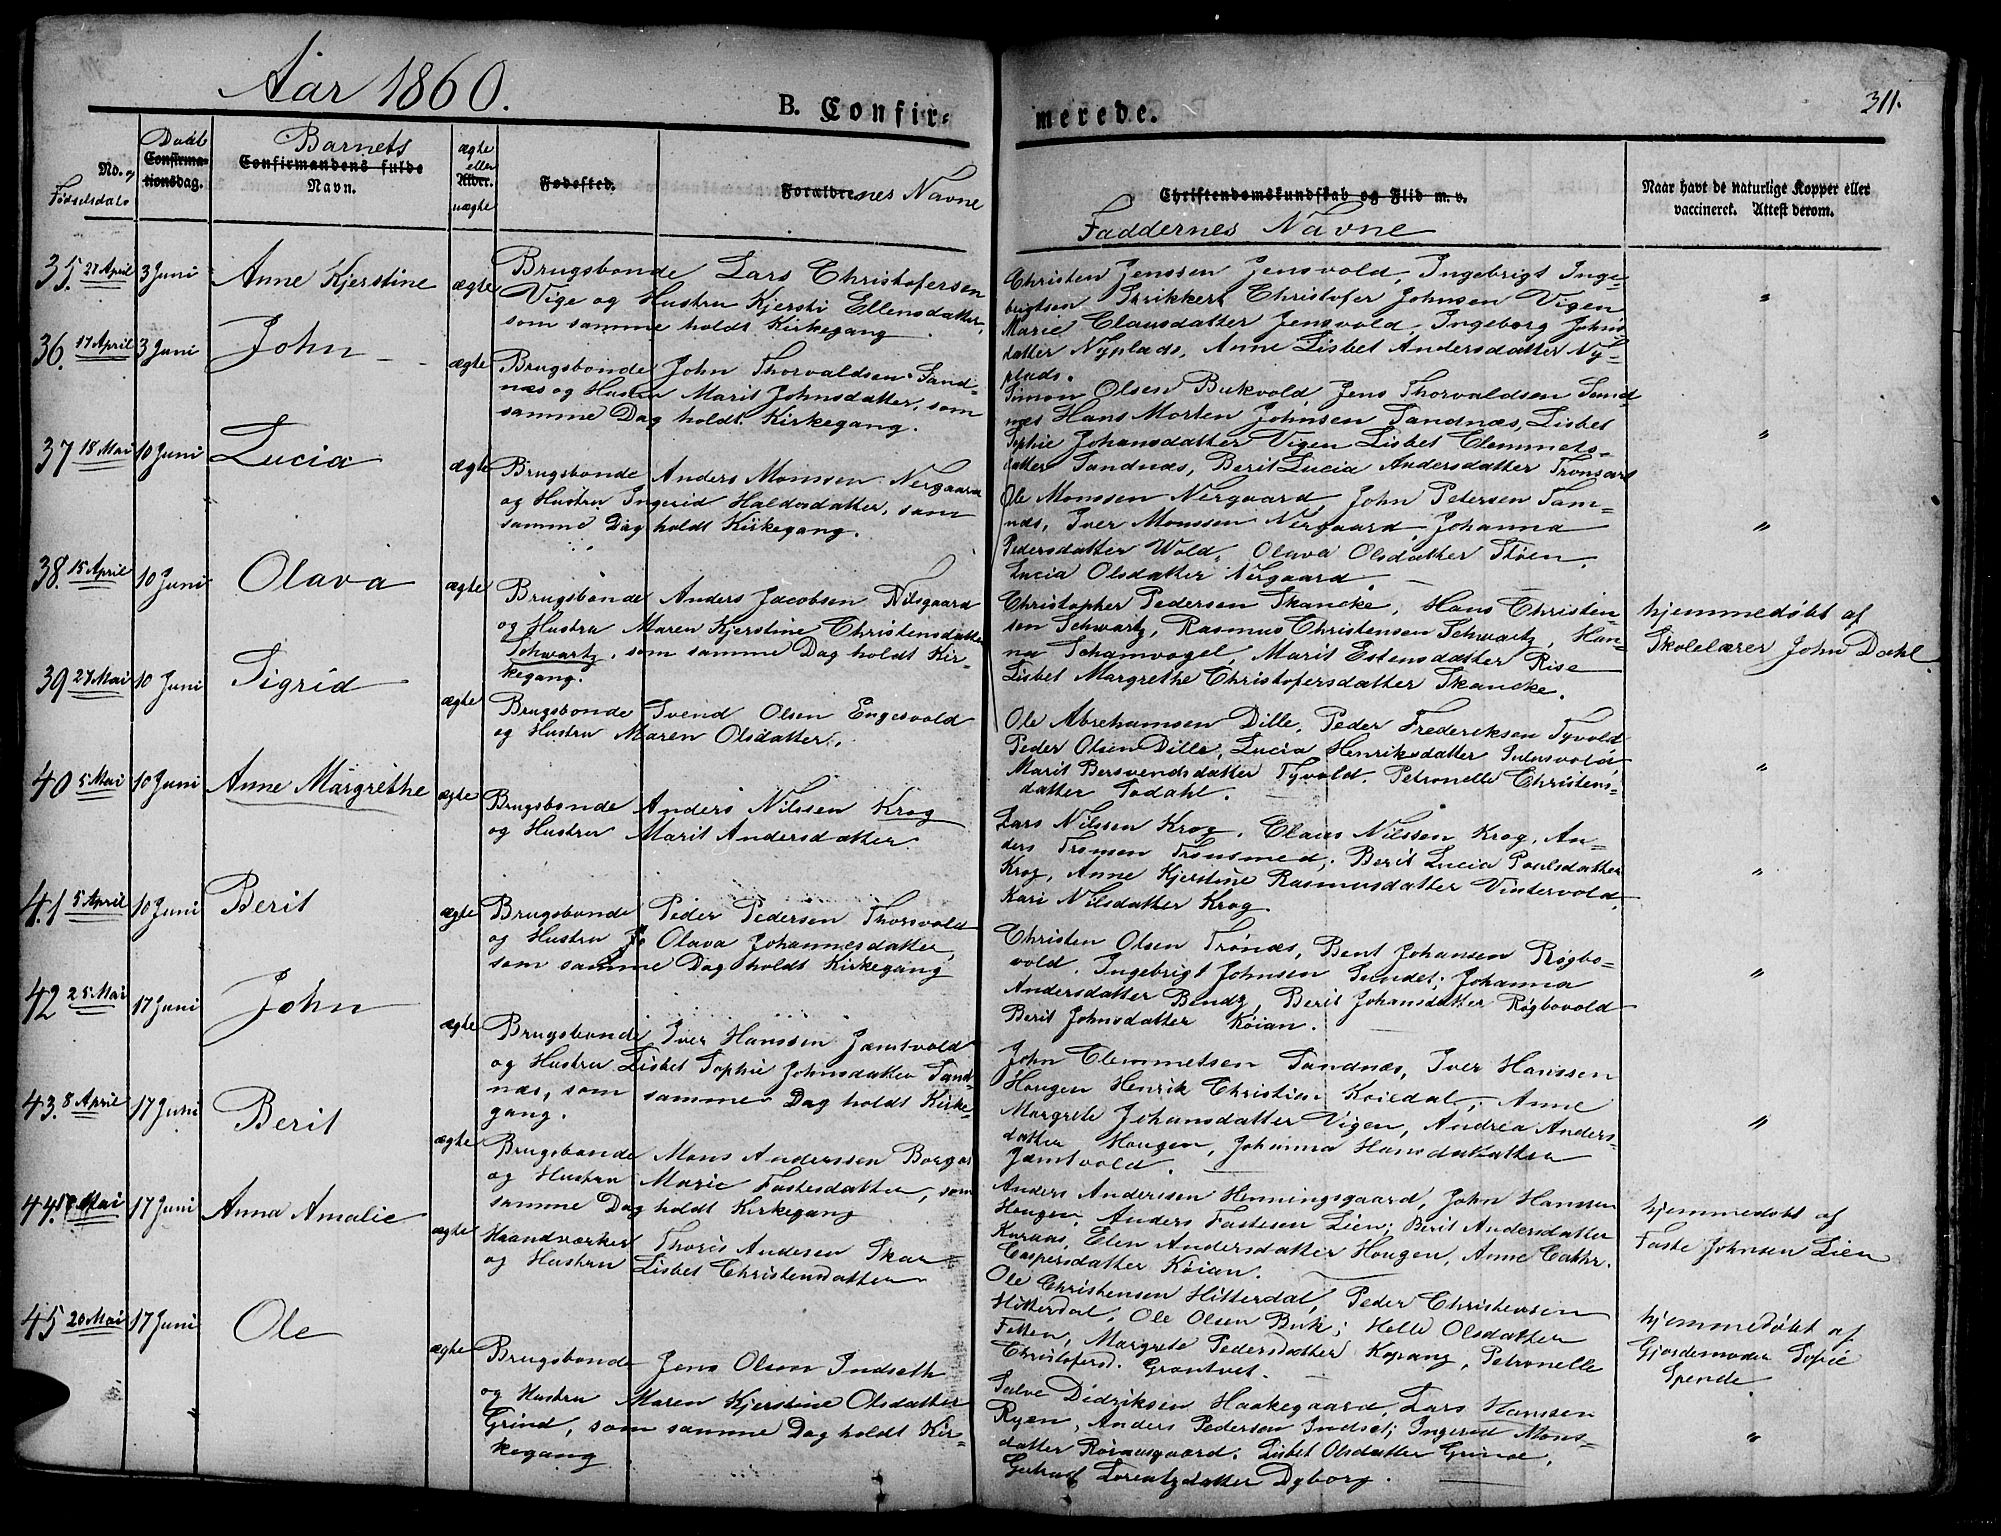 Aar 1860.
B. Confir-
merede.
311.
No. og Fødselsdato
Daab
Confirma-
tionsdag.
Barnets
Confirmandens fulde
Navn.
ægte
eller
Alder.
uægte
Fødested.
Forældrenes Navne
Christendomskundskab og Flid m. v.
Faddernes Navne
Naar havt de naturlige Kopper eller
vaccineret. Attest derom.
35. 27 April 3 Juni Anne Kjerstine ægte
Brugsbonde Lars Christofersen
Vige og Hustru Kjersti Ellensdatter,
som samme holdt Kirkegang.
Christen Jenssen Jensvold, Ingebrigt Inge-
brigtsen Strikkert, Christofer Johnsen Vigen
Marie Clausdatter Jensvold, Ingeborg Johns-
datter Nyplads, Anne Lisbet Andersdatter Ny-
plads.
"
36. 17 April 3 Juni John ægte
Brugsbonde John Thorvaldsen Sand-
næs og Hustru Marit Johnsdatter, som
samme Dag holdt Kirkegang.
Simon Olsen Bukvold, Jens Thorvaldsen Sand-
næs Hans Morten Johnsen Sandnæs, Lisbet
Sophie Johansdatter Vigen Lisbet Clemmets-
datter Sandnæs, Berit Lucia Andersdatter Tronsart
"
37 18 Mai 10 Juni Lucia ægte
Brugsbonde Anders Monssen Nergaard
og Hustru Ingerid Haldosdatter, som
samme Dag holdt Kirkegang.
Ole Monssen Nergaard John Petersen Tam-
næs, Iver Monssen Nergaard, Johanna
Pedersdatter Wold, Olava Olsdatter Støen,
Lucia Olsdatter Nergaard.
"
38. 15 April 10 Juni Olava ægte
Brugsbonde Anders Jacobsen Nilsgaard
og Hustru Maren Kjerstine Christensdatter
Schwartz, som samme Dag holdt Kir-
kegang.
Christopher Pedersen Skancke, Hans Christen-
sen Schwartz, Rasmus Christensen Schwartz, Han-
na Schamvogel, Marit Estensdatter Rise
Lisbet Margrethe Christofersdatter Skancke.
hjemmedøbt af
Skolelærer John Dahl
39 27 Mai 10 Juni Sigrid ægte
Brugsbonde Svend Olsen Engesvold
og Hustru Maren Olsdatter.
Ole Abrahamsen Dille, Peder Frederiksen Tyvold
Peder Olsen Dille, Lucia Henriksdatter
Marit Bersvendsdatter Tyvold, Petronelle Christens-
datter Sodahl.
"
40 5 Mai 10 Juni Anne Margrethe ægte
Brugsbonde Anders Nilssen Krog
og Hustru Marit Andersdatter
Lars Nilssen Krog, Claus Nilssen Krog, An-
ders Tronsen Tronsmed; Berit Lucia Poulsdatter
Krog, Anne Kjerstine Rasmusdatter Vintervold,
Kari Nilsdatter Krog.
"
41 5 April 10 Juni Berit ægte
Brugsbonde Peder Pedersen Thorsvold
og Hustru Olava Johannesdatter,
som samme Dag holdt Kirkegang
Christen Olsen Trønæs, Bent Johansen Røgbo-
vold, Ingebrigt Johnsen Sundet; Johanna
Andersdatter Bendz, Berit Johansdatter Røgbovold
Berit Johnsdatter Køian.
"
42 25 Mai 17 Juni John ægte
Brugsbonde Iver Hanssen Jamtvold
og Hustru Lisbet Sophie Johnsdatter Sand-
næs, som samme Dag holdt Kirke-
gang.
John Clemmetsen Sandnæs, Iver Hanssen
Hougen Henrik Christian Koiedal, Anne
Margrete Johansdatter Vigen, Andrea Anders-
datter Hougen, Johanna Hansdatter
Jamtvold.
"
43. 8 April 17 Juni Berit ægte
Brugsbonde Mons Anderssen Borgos
og Hustru Marie Fastesdatter, som
samme Dag holdt Kirkegang
Anders Andersen Henningsgaard, John Hanssen
Hougen, Anders Fastesen Lien; Berit Andersdatter
Kuraas, Elen Andersdatter Hougen, Anne Cathr.
Caspersdatter Køian.
hjemmedøbt af
Faste Johnsen Lien
44. Mai 17 Juni Anna Amalie ægte
Haandværker Thoris Andersen Skar
og Hustru Lisbet Christensdatter
Ole Christensen Hitterdal, Peder Christensen
Hitterdal, Ole Olsen Buk; Helle Olsdatter
Fetten, Margrete Pedersdatter Kopang, Petronelle
Christofersd. Grøntvet.
hjemmedøbt af
Gjordemoder Sofie
Spende.
45 20 Mai 17 Juni Ole ægte
Brugsbonde Jens Olsen Indseth
og Hustru Maren Kjerstine Olsdatter
Grind, som samme Dag holdt Kir-
kegang
Salve Didriksen Haakegaard, Lars Hanssen
Ryen, Anders Pedersen Indset; Ingerid Mons-
datter Røraasgaard, Lisbet Olsdatter Grind,
Gertrud Lorentzdatter Dyborg.
"